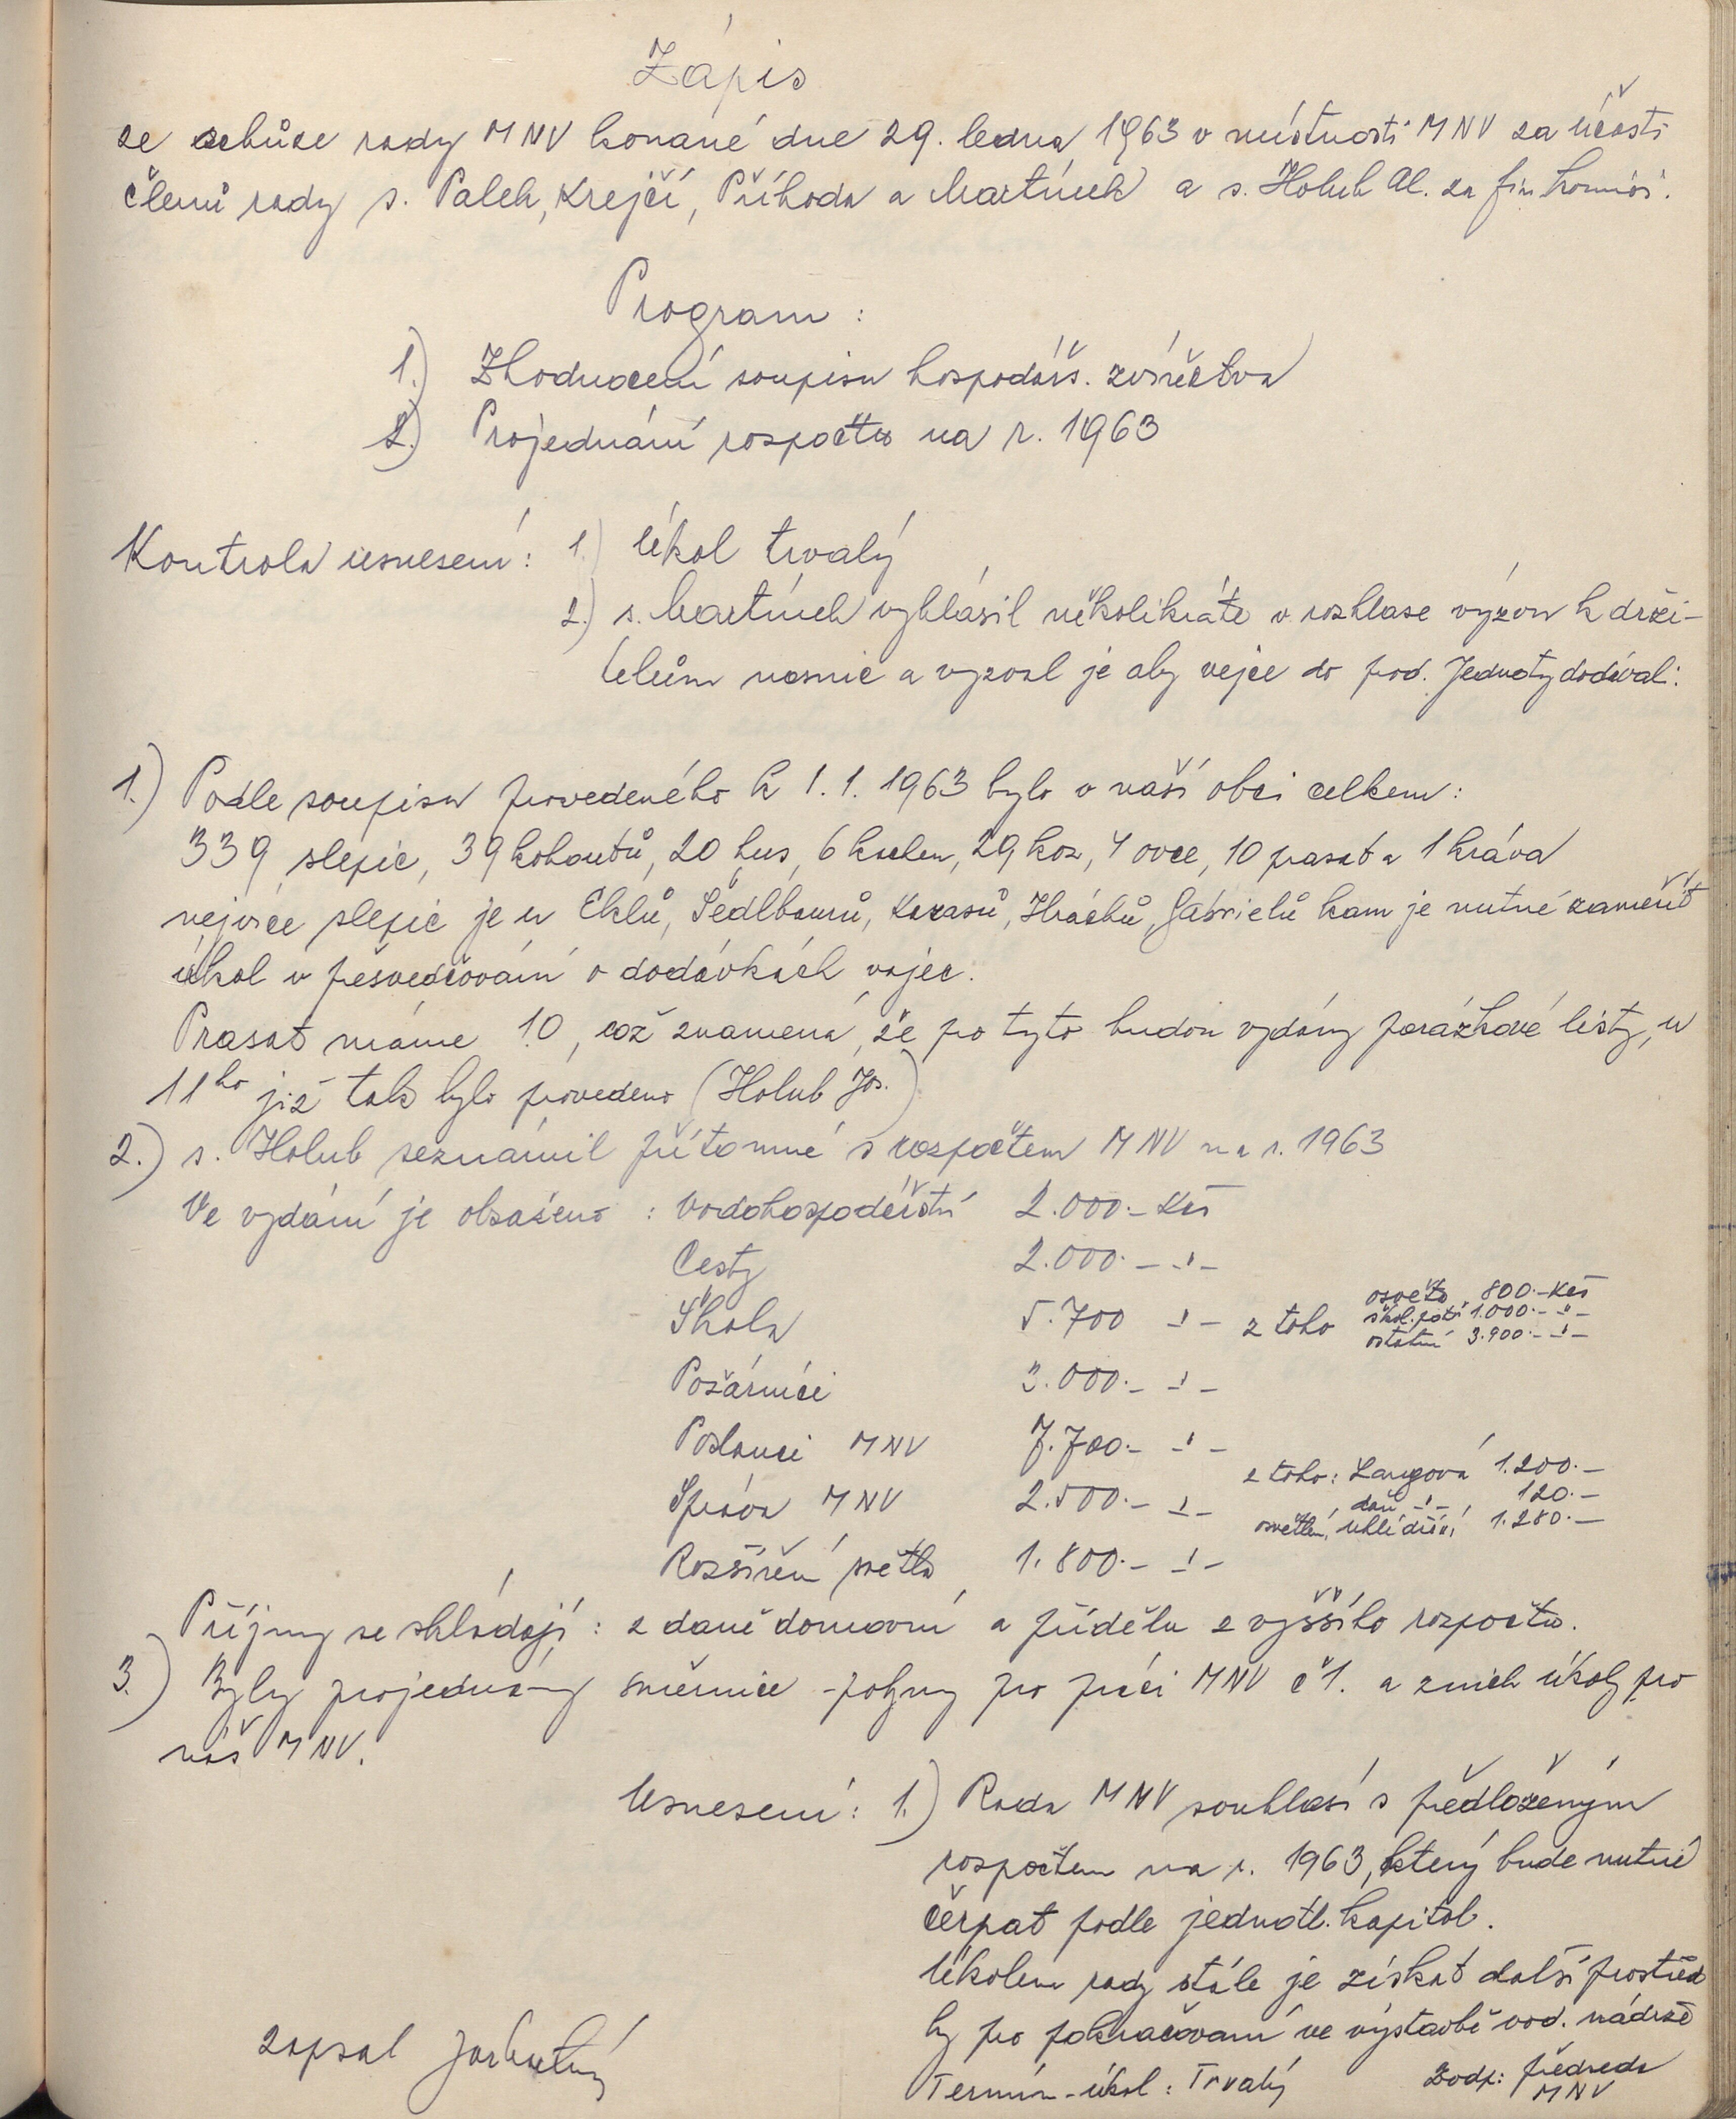 Zápis
ze schůze rady MNV konané dne 29. ledna 1963 v místnosti MNV za účasti
členů rady s. Palek, Krejčí, Příhoda a Martínek a s. Holub Al. za fin komisi.
Program :
1.) Zhodnocení soupisu hospodářs. zvířectva
2.) Projednání rozpočtu na r. 1963
Kontrola usnesení : 1.) Úkol trvalý
2.) s. Martínek vyhlásil několikráte v rozhlase výzvu k drži-
telům nosnic a vyzval je aby vejce do prod. Jednoty dodávali
1.) Podle soupisu provedeného k 1. 1. 1963 bylo v naší obci celkem :
339 slepic, 39 kohoutů, 20 hus, 6 kachen, 29 koz, 4 ovce, 10 prasat a 1 kráva
nejvíce slepic je u Eklů, Šedlbauerů, Karasů, Hrachů, Gabrielů kam je nutné zaměřit
úkol v přesvědčování o dodávkách vajec.
Prasat máme 10, což znamená, že po tyto budou vydány porážkové listy, u
11ho již tak bylo provedeno (Holub Jos.)
2.) s. Holub seznámil přítomné s rozpočtem MNV na r. 1963
Ve vydání je obsaženo : Vodohospodářství 2.000.- Kčs
Cesty 2.000.- -"-
Škola 5.700 -"- z toho osvěta 800.- Kčs
škol. potř. 1.000.- -"-
ostatní 3.900.- -"-
Požárníci 3.000.- -"-
Poslanci MNV 7.700.- -"-
Správa MNV 2.500.- -"- z toho : Langová 1.200.-
daň -"- 120.-
osvětlení, uhlí 1.280.-
Rozšíření světla 1.800.- -"-
Příjmy se skládají : z daně domovní a přídělu z vyššího rozpočtu.
3.) Byly projednány směrnice - pokyny pro práci MNV č 1. a z nich úkoly pro
náš MNV.
Usnesení : 1.) Rada MNV souhlasí s předloženým
rozpočtem na r. 1963, který bude nutné
čerpat podle jednotl. kapitol.
Úkolem rady stále je získat další prostřed
ky pro pokračování ve výstavbě vod. nádrže
Termín - úkol : Trvalý Zodp: předseda
MNV
zapsal